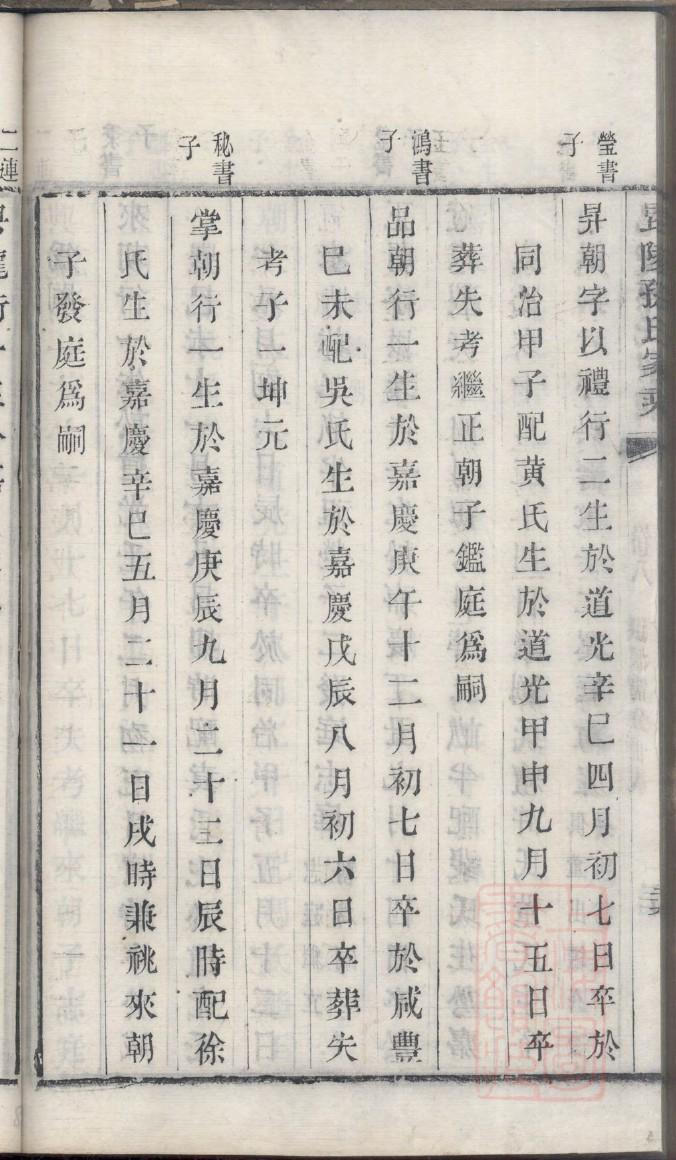 瑩書子
昇朝字以禮行二生於道光辛巳四月初七日卒於
同治甲子配黄氏生於道光甲申九月十五日卒
葬失考繼正朝子鑑庭爲嗣
鴻書子
品朝行一生於嘉慶庚午十二月初七日卒於咸豐
巳未配吳氏生於嘉慶戊辰八月初六日卒葬失
考子一坤元
秘書子
掌朝行一生於嘉慶庚辰九月二十三日辰時配徐
氏生於嘉慶辛巳五月二十一日戌時兼祧來朝
子發庭爲嗣
二連